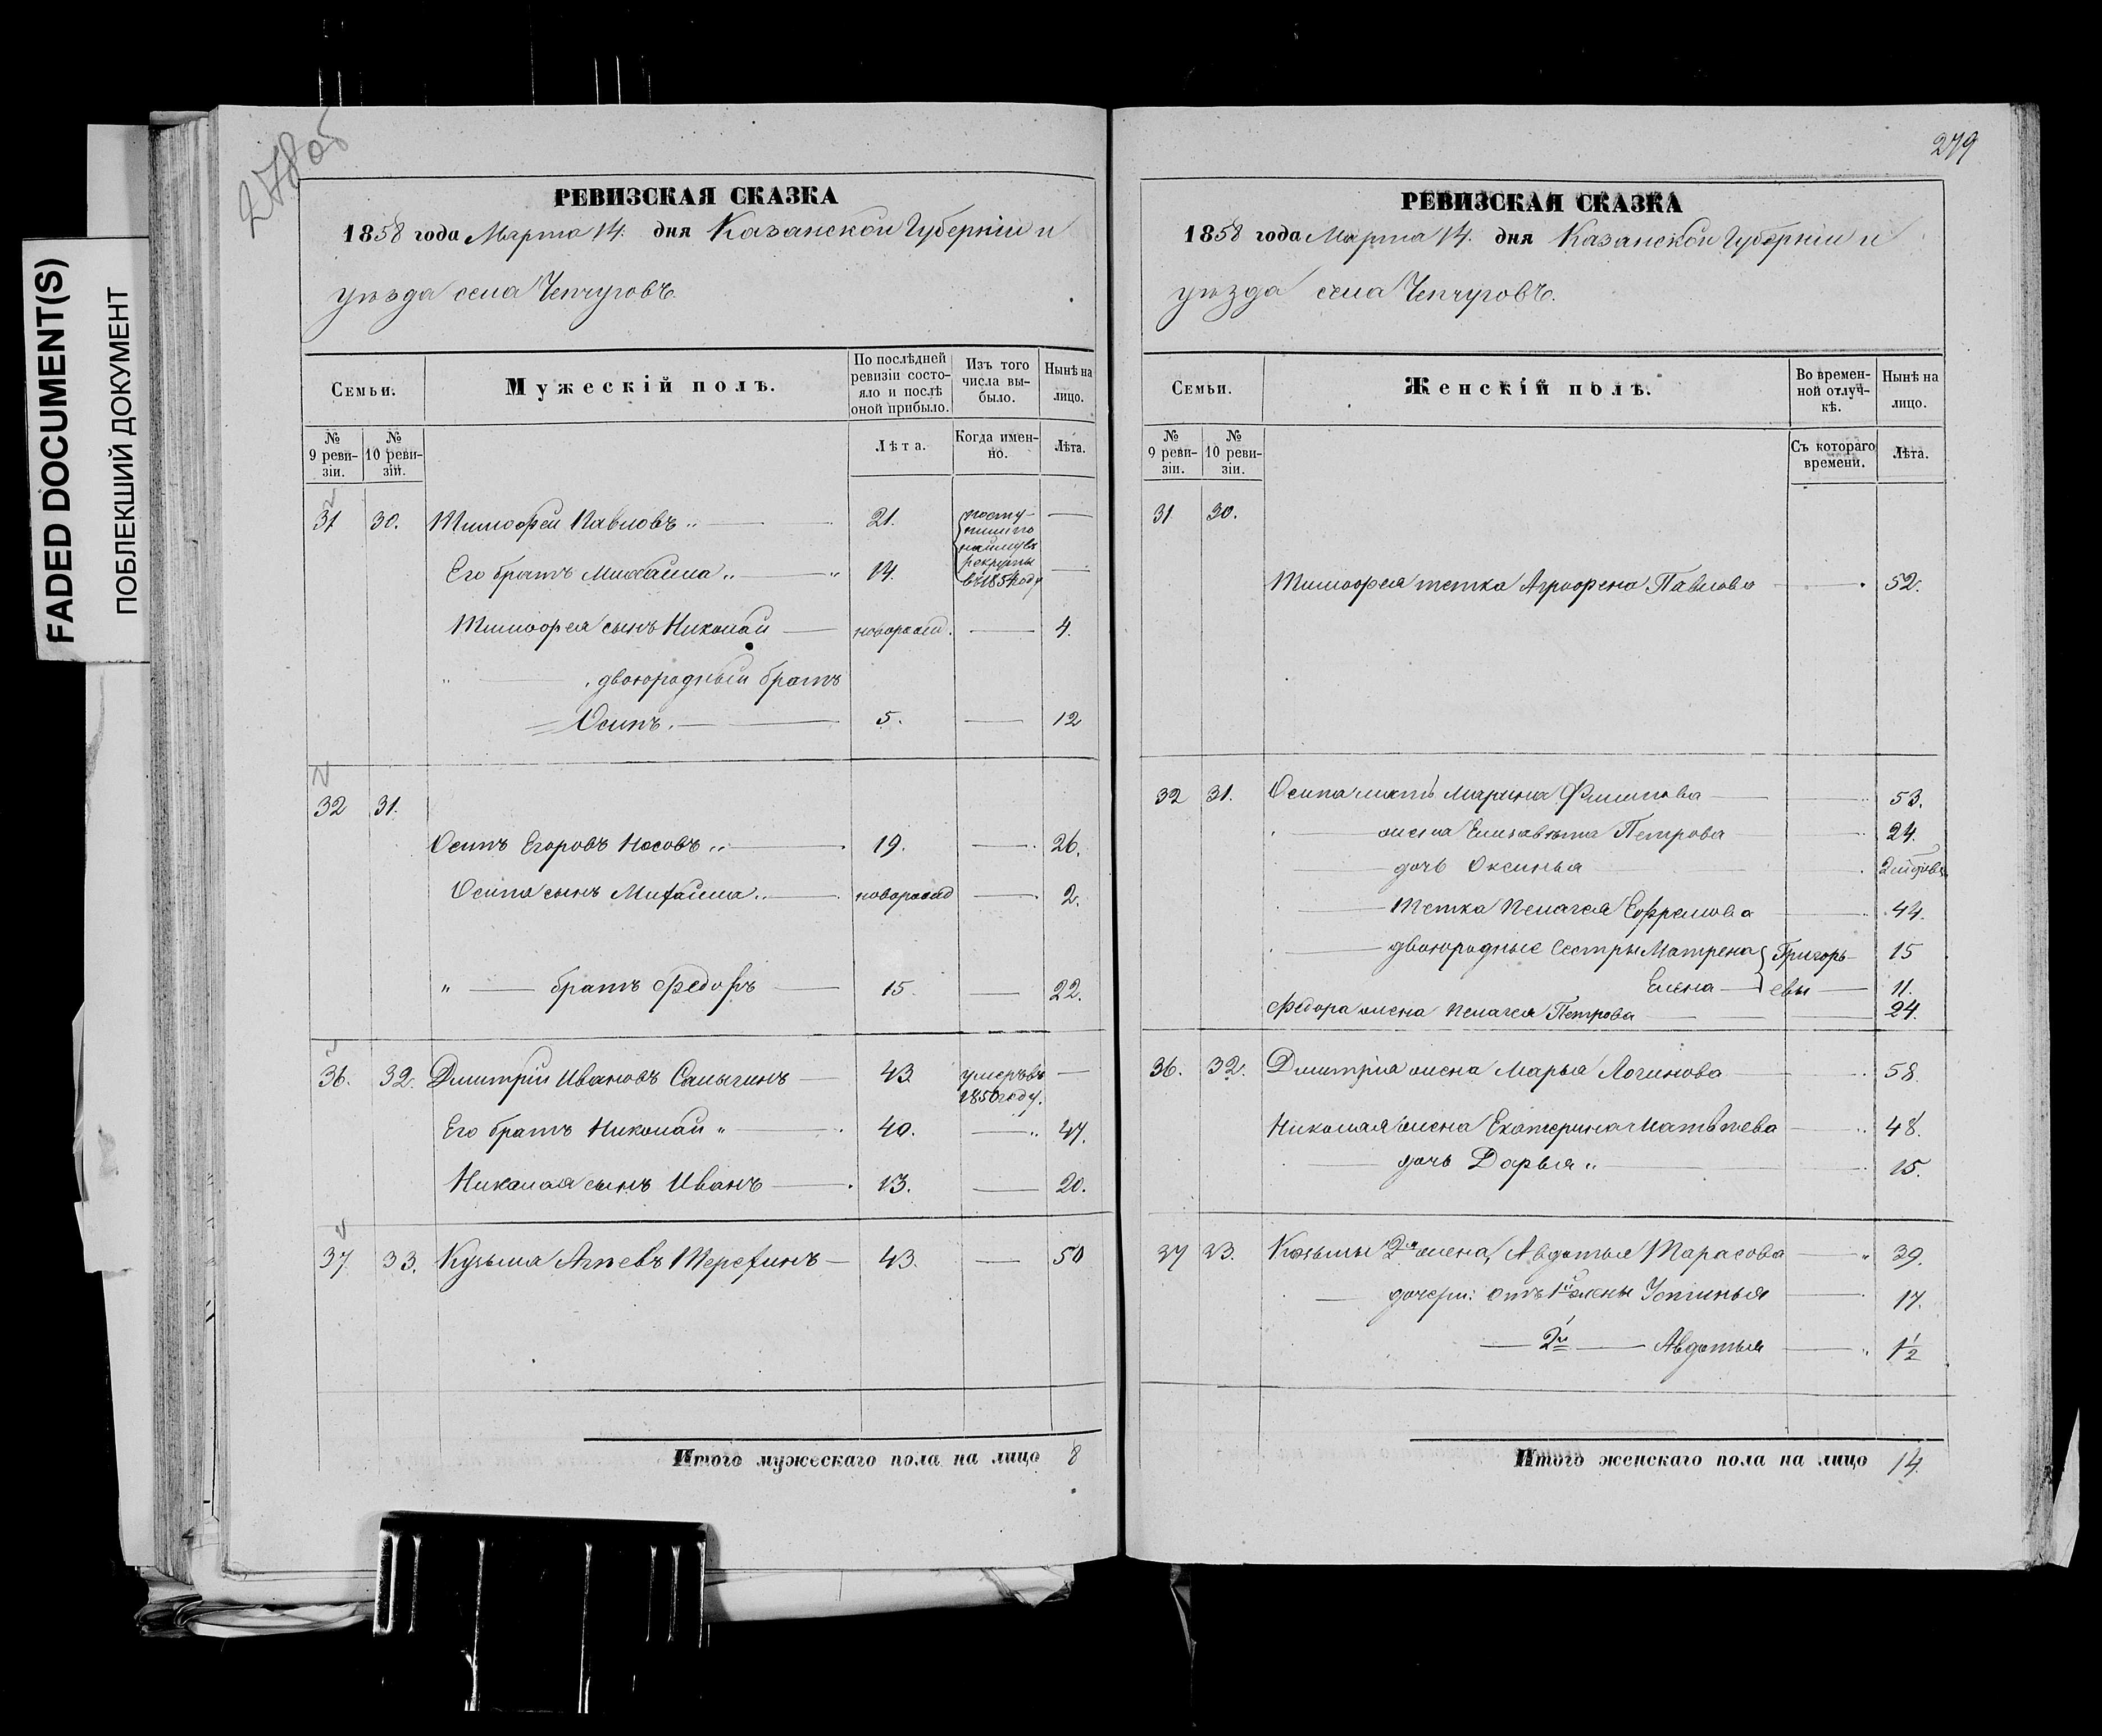 FADED DOCUMENT(S)
ПОБЛЕКШИЙ ДОКУМЕНТ
278об
РЕВИЗСКАЯ СКАЗКА
1858 года Марта 14. дня Казанской Губерніи и
уѣзда села Чепчуговъ.
Семьи.
Мужескій полъ.
По послѣдней ревизіи состо-
яло и послѣ оной прибыло.
Изъ того числа вы-
было.
Нынѣ на лицо.
№ 9 реви-
зіи.
№ 10 реви-
зіи.
Лѣта.
Когда имен-
но.
Лѣта.
31 30. Тимофей Павловъ „ — 21. —
посту-
рекруты
въ 1854 году
Его братъ Михайла „ — „ 14. —
Тимофея сынъ Николай — новорожд. — 4.
„ — двоюродный братъ
Осипъ. — 5. — 12
32 31.
Осипъ Егоровъ Носовъ „ — 19. — 26.
Осипа сынъ Михайла „ — новорожд — 2.
„ — братъ Федоръ — 15. — 22.
36. 32. Дмитрій Ивановъ Салыгинъ — 43 умеръ въ —
1850 году.
Его братъ Николай „ — 40. — „ 47.
Николая сынъ Иванъ — 13. — 20.
37 33. Кузьма Агѣевъ Терехинъ — 43. — 50
Итого мужескаго пола на лицо 8
279
РЕВИЗСКАЯ СКАЗКА
1858 года Марта 14. дня Казанской Губерніи и
уѣзда села Чепчуговъ.
Семьи.
Женскій полъ.
Во времен-
ной отлуч-
кѣ.
Нынѣ на лицо.
№ 9 реви-
зіи.
№ 10 реви-
зіи.
Съ котораго времени.
Лѣта.
31 30.
Тимофея тетка Аграфена Павлова — 52.
32 31. Осипа мать Марина Филипова — 53.
— жена Елизавета Петрова — 24.
— дочь Оксинья —
— Тетка Пелагея Ефремова — 44.
— двоюродные сестры Матрена } Григорь- 15
Елена — евы — 11.
Федора жена Пелагея Петрова — 24.
36. 32. Дмитрія жена Марья Логинова — 58.
Николая жена Екатерина Матвѣева — 48.
— дочь Дарья „ — 15.
37 33. Козьмы 2я жена, Авдотья Тарасова — „ 39.
— дочери: отъ 1й жены Устинья — 17.
— 2й — Авдотья — „ 1/2
Итого женскаго пола на лицо 14.